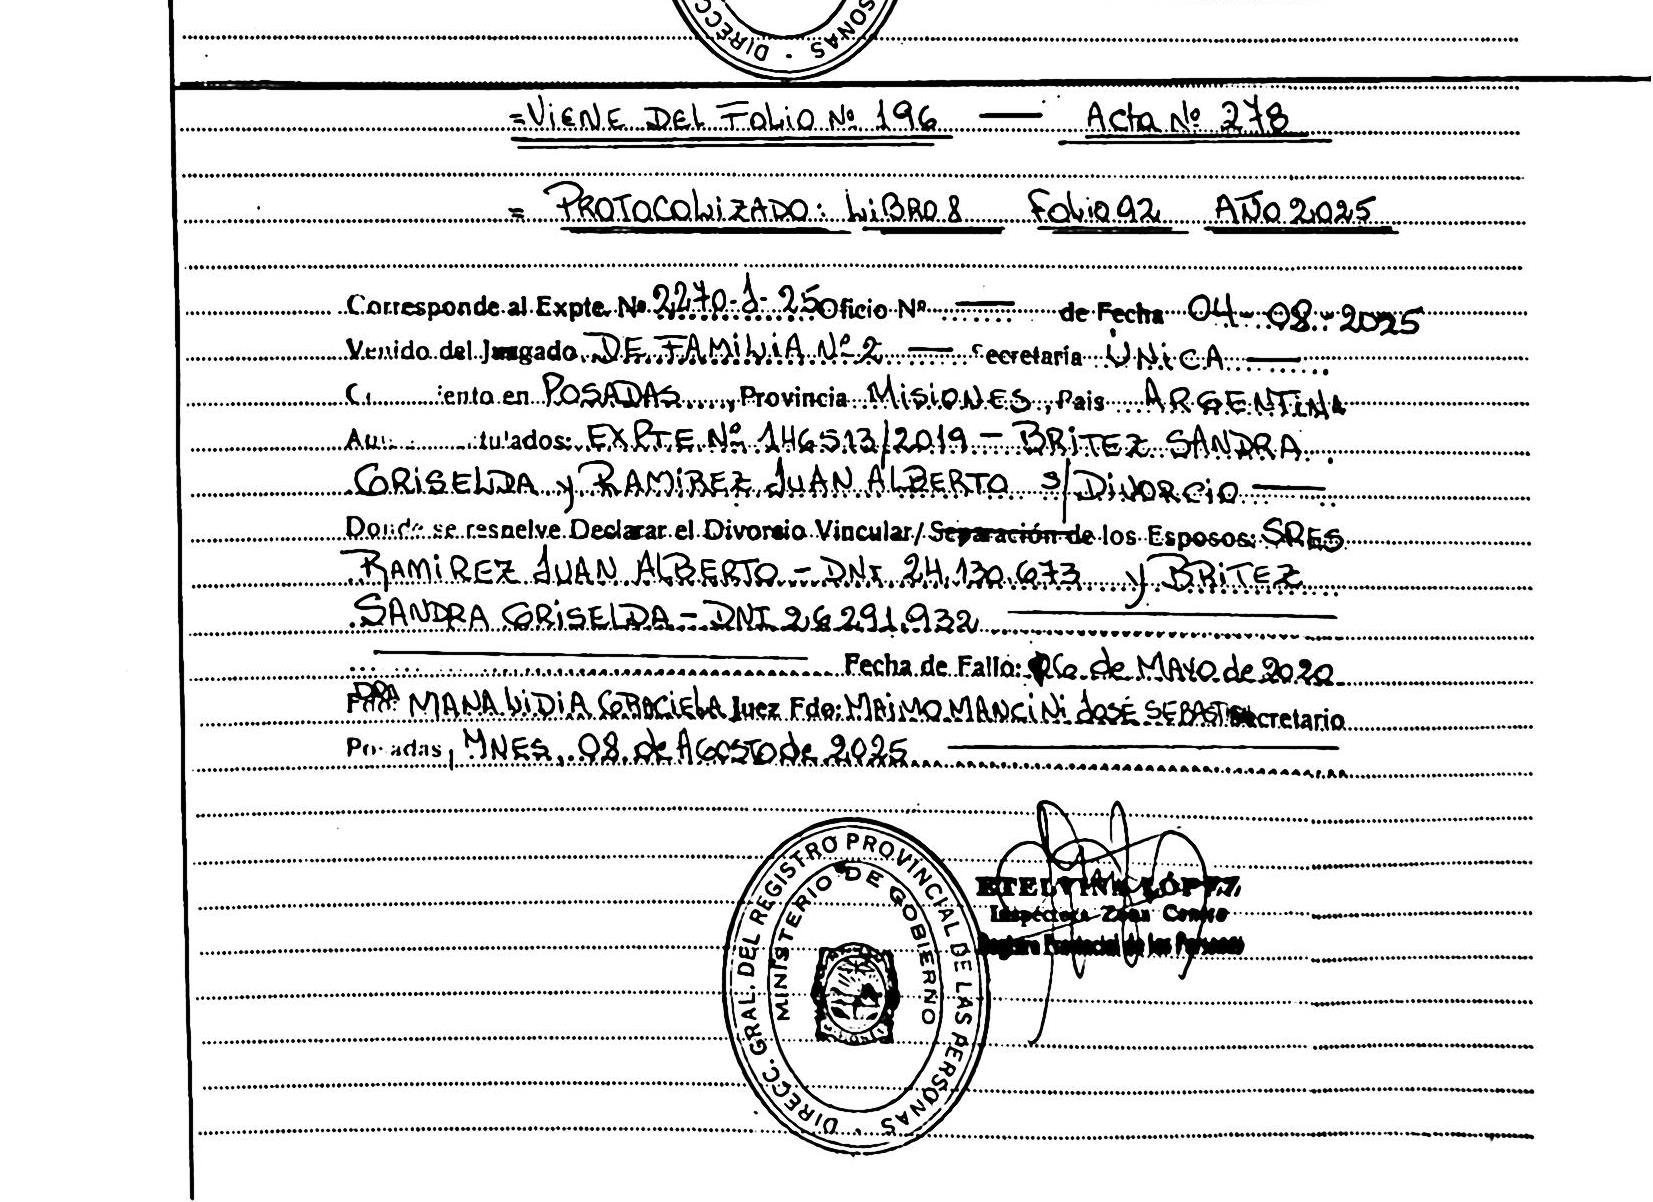 DIRECC SONAS
=VIENE DEL FOLIO Nº 196 — Acta Nº 278
= PROTOCOLIZADO: LIBRO 8 FOLIO 92 AÑO 2025
Corresponde al Expte. Nº 2270-J-25 Oficio Nº — de Fecha 04-08-2025
Venido del Juzgado DE FAMILIA Nº 2 — Secretaría ÚNICA —
en POSADAS, Provincia MISIONES, Pais ARGENTINA
EXPTE Nº 146513/2019 - BRITEZ SANDRA
GRISELDA y RAMIREZ JUAN ALBERTO S/ DIVORCIO —
Donde se resuelve Declarar el Divorcio Vincular/ Separación de los Esposos: SRES
RAMIREZ JUAN ALBERTO - DNI 24.130.673 y BRITEZ
SANDRA GRISELDA - DNI 26291.932
Fecha de Fallo: 06 de MAYO de 2020
Fdo: DRA MANA LIDIA GRACIELA Juez Fdo: MAIMO MANCINI JOSÉ SEBASTIAN Secretario
Posadas, MNES, 08 de AGOSTO de 2025
DIRECC. GRAL. DEL REGISTRO PROVINCIAL DE LAS PERSONAS
MINISTERIO DE GOBIERNO
ETELVINA LÓPEZ
Inspectora Zona Centro
Registro Provincial de las Personas